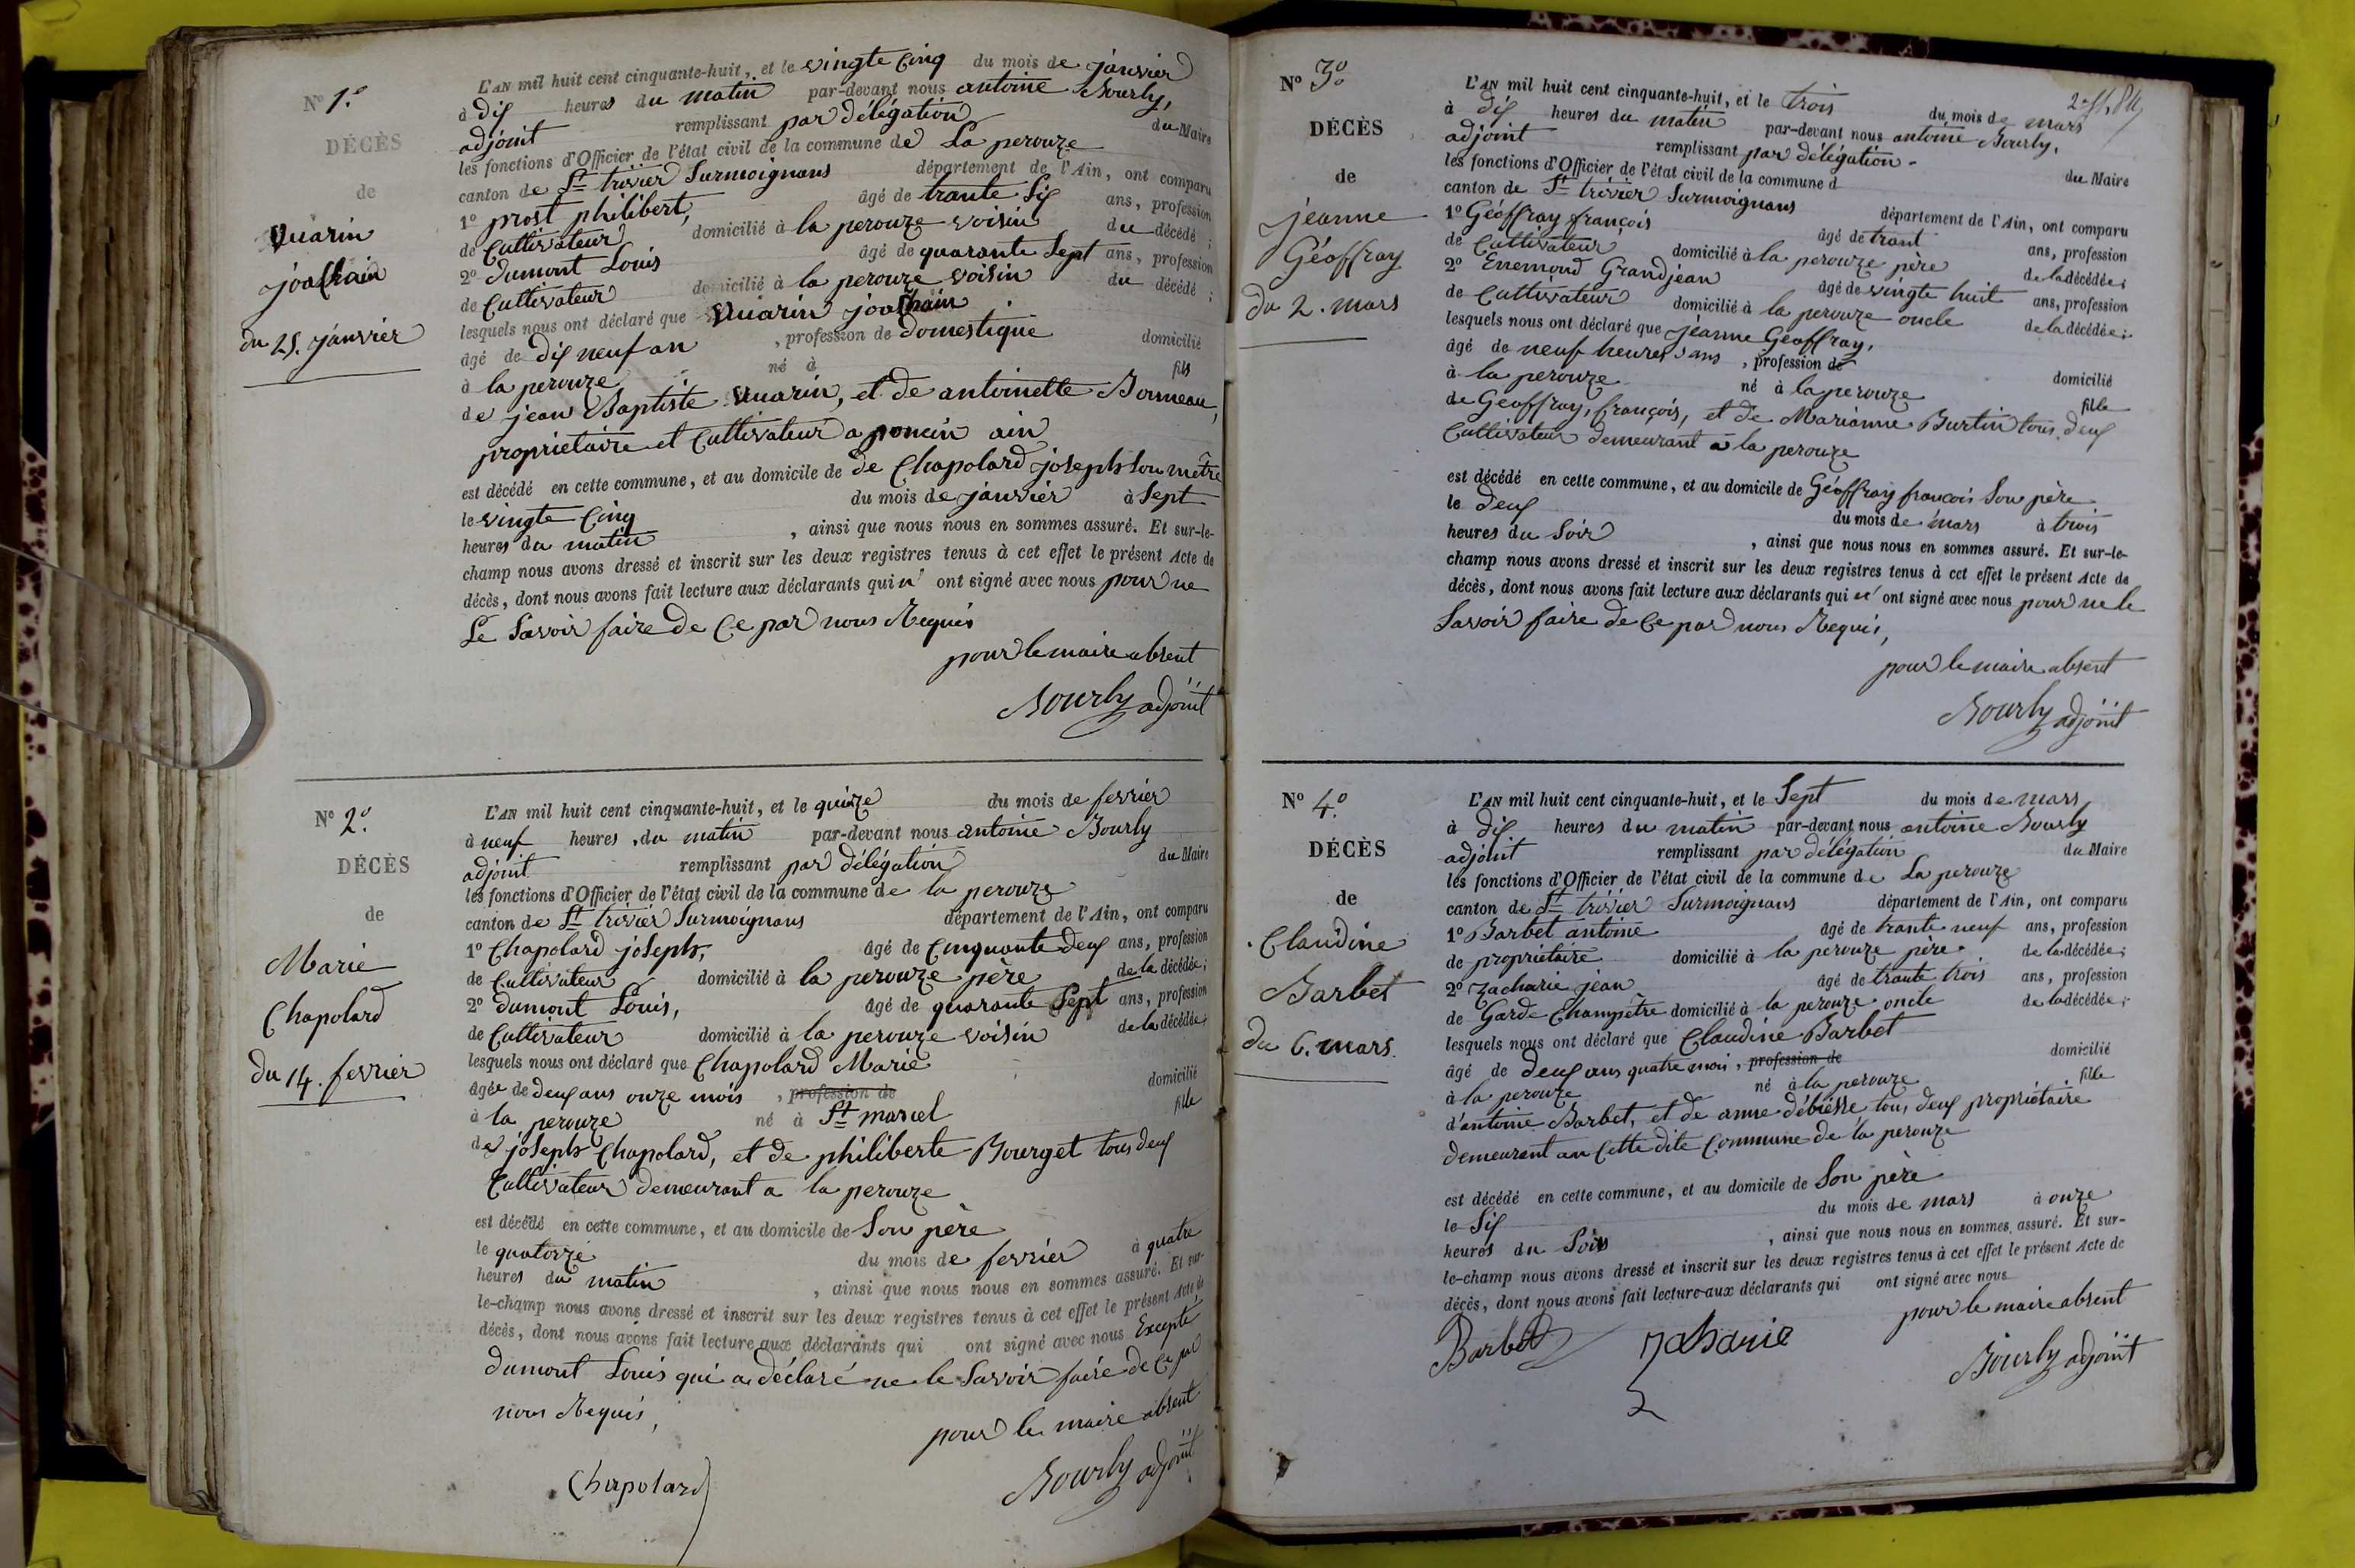 N° 1.°
DÉCÈS
de
Vuarin
joachain
du 25. janvier
L'AN mil huit cent cinquante-huit, et le vingte Cinq du mois de janvier
à dix heures du matin par-devant nous antoine Bourly,
adjoint remplissant par délégation du Maire
les fonctions d'Officier de l'état civil de la commune de La perouze
canton de St trivier Surmoignans département de l'Ain, ont comparu
1° prost philibert, âgé de trante Six ans, profession
de Cultivateur domicilié à la perouze voisin du décédé ;
2° dumont Louis âgé de quarante Sept ans, profession
de Cultivateur domicilié à la perouze voisin du décédé ;
lesquels nous ont déclaré que Vuarin joachain
âgé de dix neuf an , profession de domestique domicilié
à la perouze né à fils
de jean Baptiste Vuarin, et de antoinette Bonneau,
proprietaire et Cultivateur a poncin ain
est décédé en cette commune, et au domicile de de Chapolard joseph Son mêtre
le vingte Cinq du mois de janvier à Sept
heures du matin , ainsi que nous nous en sommes assuré. Et sur-le-
champ nous avons dressé et inscrit sur les deux registres tenus à cet effet le présent Acte de
décès, dont nous avons fait lecture aux déclarants qui n' ont signé avec nous pour ne
Le Savoir faire de Ce par nous Requis
pour le maire absent
Bourly adjoint
N° 2.°
DÉCÈS
de
Marie
Chapolard
du 14. fevrier
L'AN mil huit cent cinquante-huit, et le quinze du mois de fevrier
à neuf heures du matin par-devant nous antoine Bourly
adjoint remplissant par délégation du Maire
les fonctions d'Officier de l'état civil de la commune de la perouze
canton de St trivier Surmoignans département de l'Ain, ont comparu
1° Chapolard joseph, âgé de Cinquante deux ans, profession
de Cultivateur domicilié à la perouze père de la décédée ;
2° dumont Louis, âgé de quarante Sept ans, profession
de Cultivateur domicilié à la perouze voisin de la décédée ;
lesquels nous ont déclaré que Chapolard Marie
âgée de deux ans onze mois , profession de domicilié
à la perouze né à St marcel fille
de joseph Chapolard, et de philiberte Bourget tous deux
Cultivateur demeurant a la perouze
est décédé en cette commune, et au domicile de Son père
le quatorze du mois de fevrier à quatre
heures du matin , ainsi que nous nous en sommes assuré. Et sur-
le-champ nous avons dressé et inscrit sur les deux registres tenus à cet effet le présent Acte de
décès, dont nous avons fait lecture aux déclarants qui ont signé avec nous Excepté
dumont Louis qui a déclaré ne le Savoir faire de Ce par
nous Requis,
pour le maire absent
Chapolard
Bourly adjoint
N° 3.°
DÉCÈS
de
jeanne
Géoffray
du 2. mars
L'AN mil huit cent cinquante-huit, et le trois du mois de mars
à dix heures du matin par-devant nous antoine Bourly,
adjoint remplissant par délégation - du Maire
les fonctions d'Officier de l'état civil de la commune d
canton de St trivier Surmoignans département de l'Ain, ont comparu
1° Géoffray françois âgé de trant ans, profession
de Cultivateur domicilié à la perouze père de la décédée ;
2° Ennemond Grandjean âgé de vingte huit ans, profession
de Cultivateur domicilié à la perouze oncle de la décédée ;
lesquels nous ont déclaré que jeanne Géoffray,
âgé de neuf heures ans , profession de domicilié
à la perouze né à la perouze fille
de Geoffray, françois, et de Marianne Burtin tous deux
Cultivateur demeurant a la perouze
est décédé en cette commune, et au domicile de Géoffray françois Son père
le deux du mois de mars à trois
heures du Soir , ainsi que nous nous en sommes assuré. Et sur-le-
champ nous avons dressé et inscrit sur les deux registres tenus à cet effet le présent Acte de
décès, dont nous avons fait lecture aux déclarants qui n' ont signé avec nous pour ne le
Savoir faire de Ce par nous Requis,
pour le maire absent
Bourly adjoint
N° 4.°
DÉCÈS
de
Claudine
Barbet
du 6. mars
L'AN mil huit cent cinquante-huit, et le Sept du mois de mars
à dix heures du matin par-devant nous antoine Bourly
adjoint remplissant par délégation du Maire
les fonctions d'Officier de l'état civil de la commune de La perouze
canton de St trivier Surmoignans département de l'Ain, ont comparu
1° Barbet antoine âgé de trante neuf ans, profession
de propriétaire domicilié à la perouze père de la décédée ;
2° Zacharie jean âgé de trante trois ans, profession
de Garde Champêtre domicilié à la perouze oncle de la décédée ;
lesquels nous ont déclaré que Claudine Barbet
âgé de deux ans quatre moi , profession de domicilié
à la perouze né à la perouze fille
d'antoine Barbet, et de anne débiesse, tous deux propriétaire
demeurant au Cette dite Commune de la perouze
est décédé en cette commune, et au domicile de Son père
le Six du mois de mars à onze
heures du Soir , ainsi que nous nous en sommes assuré. Et sur-
le-champ nous avons dressé et inscrit sur les deux registres tenus à cet effet le présent Acte de
décès, dont nous avons fait lecture aux déclarants qui ont signé avec nous
pour le maire absent
Barbet Zacharie
Bourly adjoint